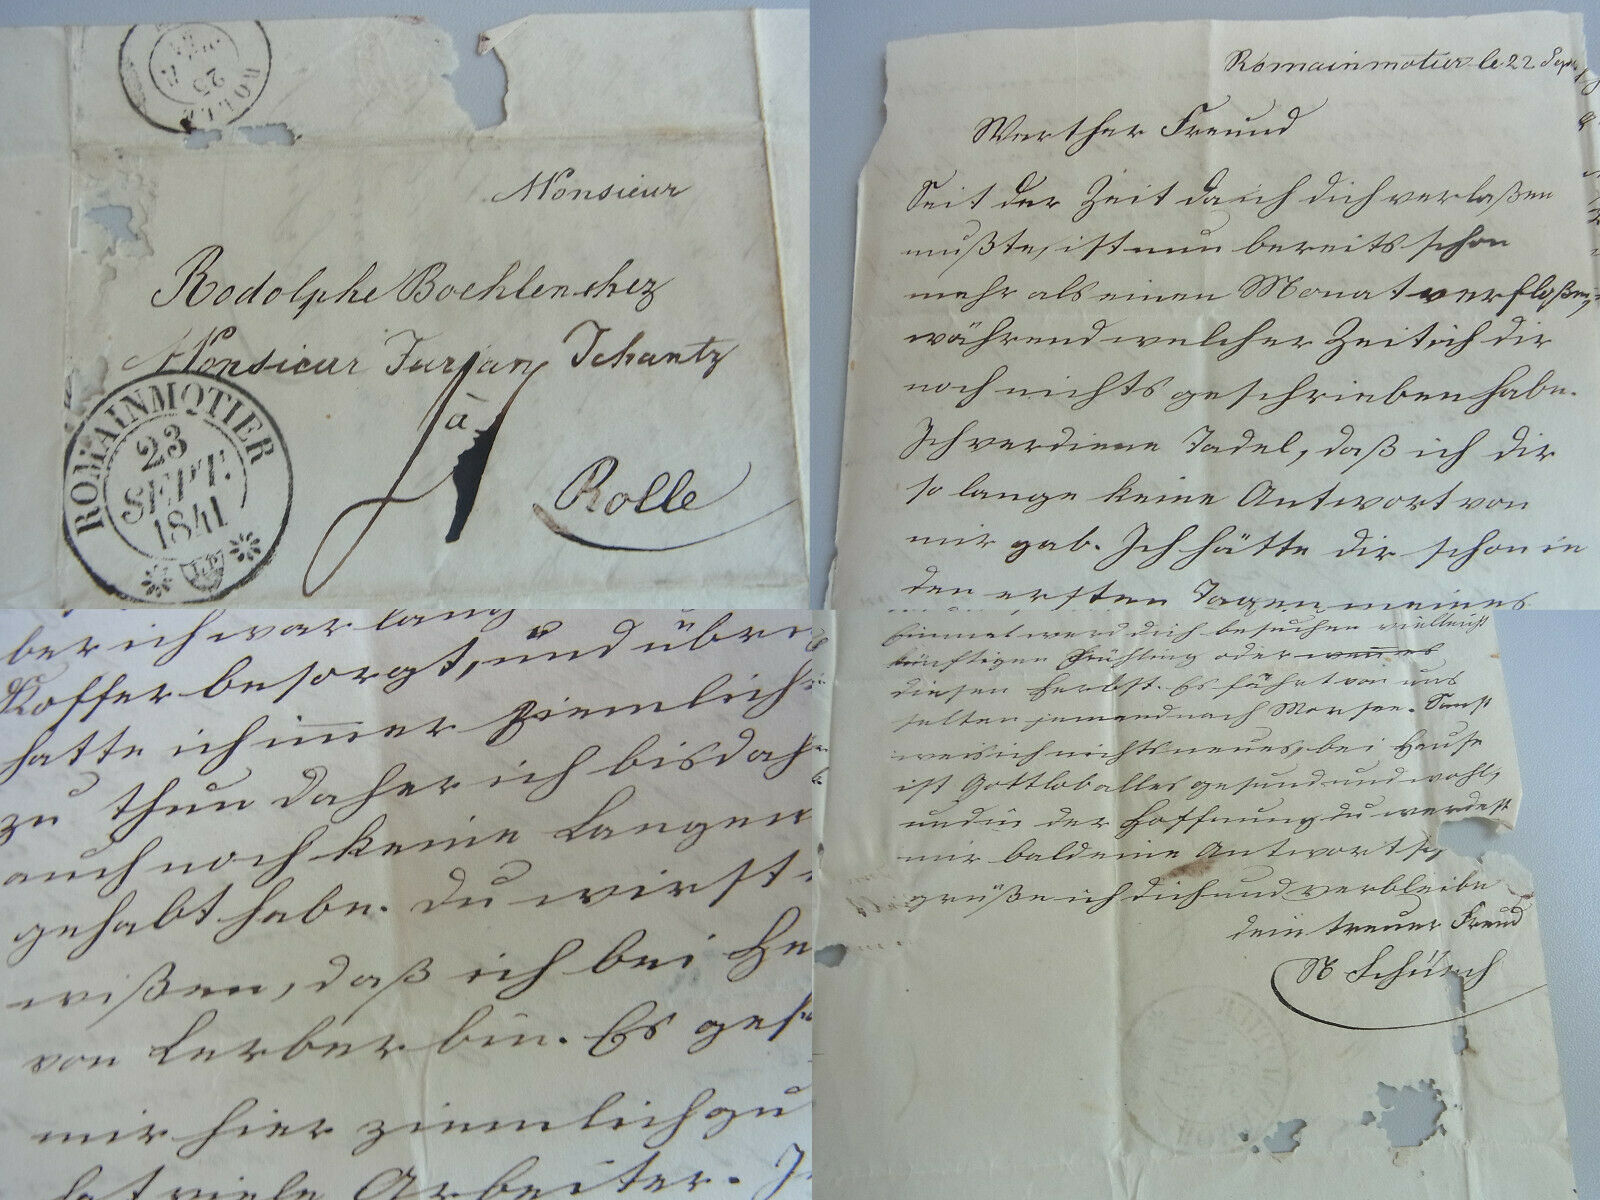 ROLLE
23
Monsieur
Rodolphe Boehlen chez
Monsieur Jurian Tchantz
à
Rolle
ROMAINMOTIER
23
SEPT.
1841
Romainmotier le 22 Sept.
Werther Freund
Seit der Zeit da ich dich verlaßen
mußte, ist nun bereits schon
mehr als einen Monat verfloßen,
während welcher Zeit ich dir
noch nichts geschrieben habe.
Ich verdiene Tadel, daß ich dir
so lange keine Antwort von
mir gab. Ich hätte dir schon in
den ersten Tagen meines
ber ich war lang
Koffer besorgt, und übri
hatte ich immer ziemlich
zu thun daher ich bis dah
auch noch keine Langen
gehabt habe. Du wirst
wißen, daß ich bei He
von Lerber bin. Es gef
mir hier ziemlich gu
hat viele Arbeiter. I
Einmal werd dich besuchen vielleicht
künftigen Frühling oder
diesen Herbst. Es fährt von uns
selten jemand nach Morsee. Sonst
weis ich nichts neues, bei Hause
ist Gottlob alles gesund und wohl,
und in der Hoffnung du werdest
mir bald eine Antwort
grüße ich dich und verbleibe
dein treuer Freund
N Schürch